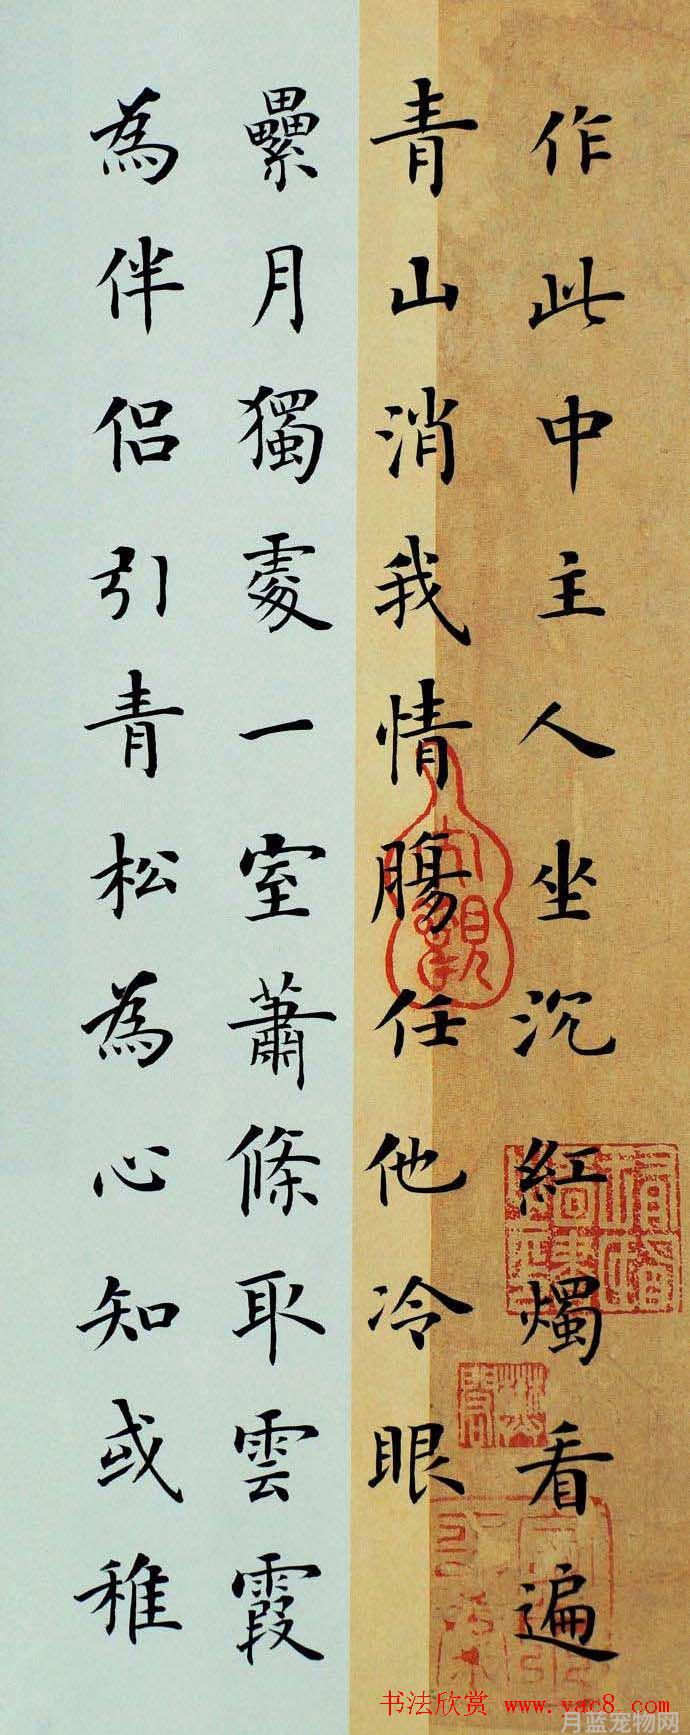 作此中主人坐沉紅燭看遍
青山消我情腸任他冷眼
纍月獨處一室蕭條取雲霞
為伴侣引青松為心知或稚
书法欣赏 www.yac8.com
月蓝宠物网